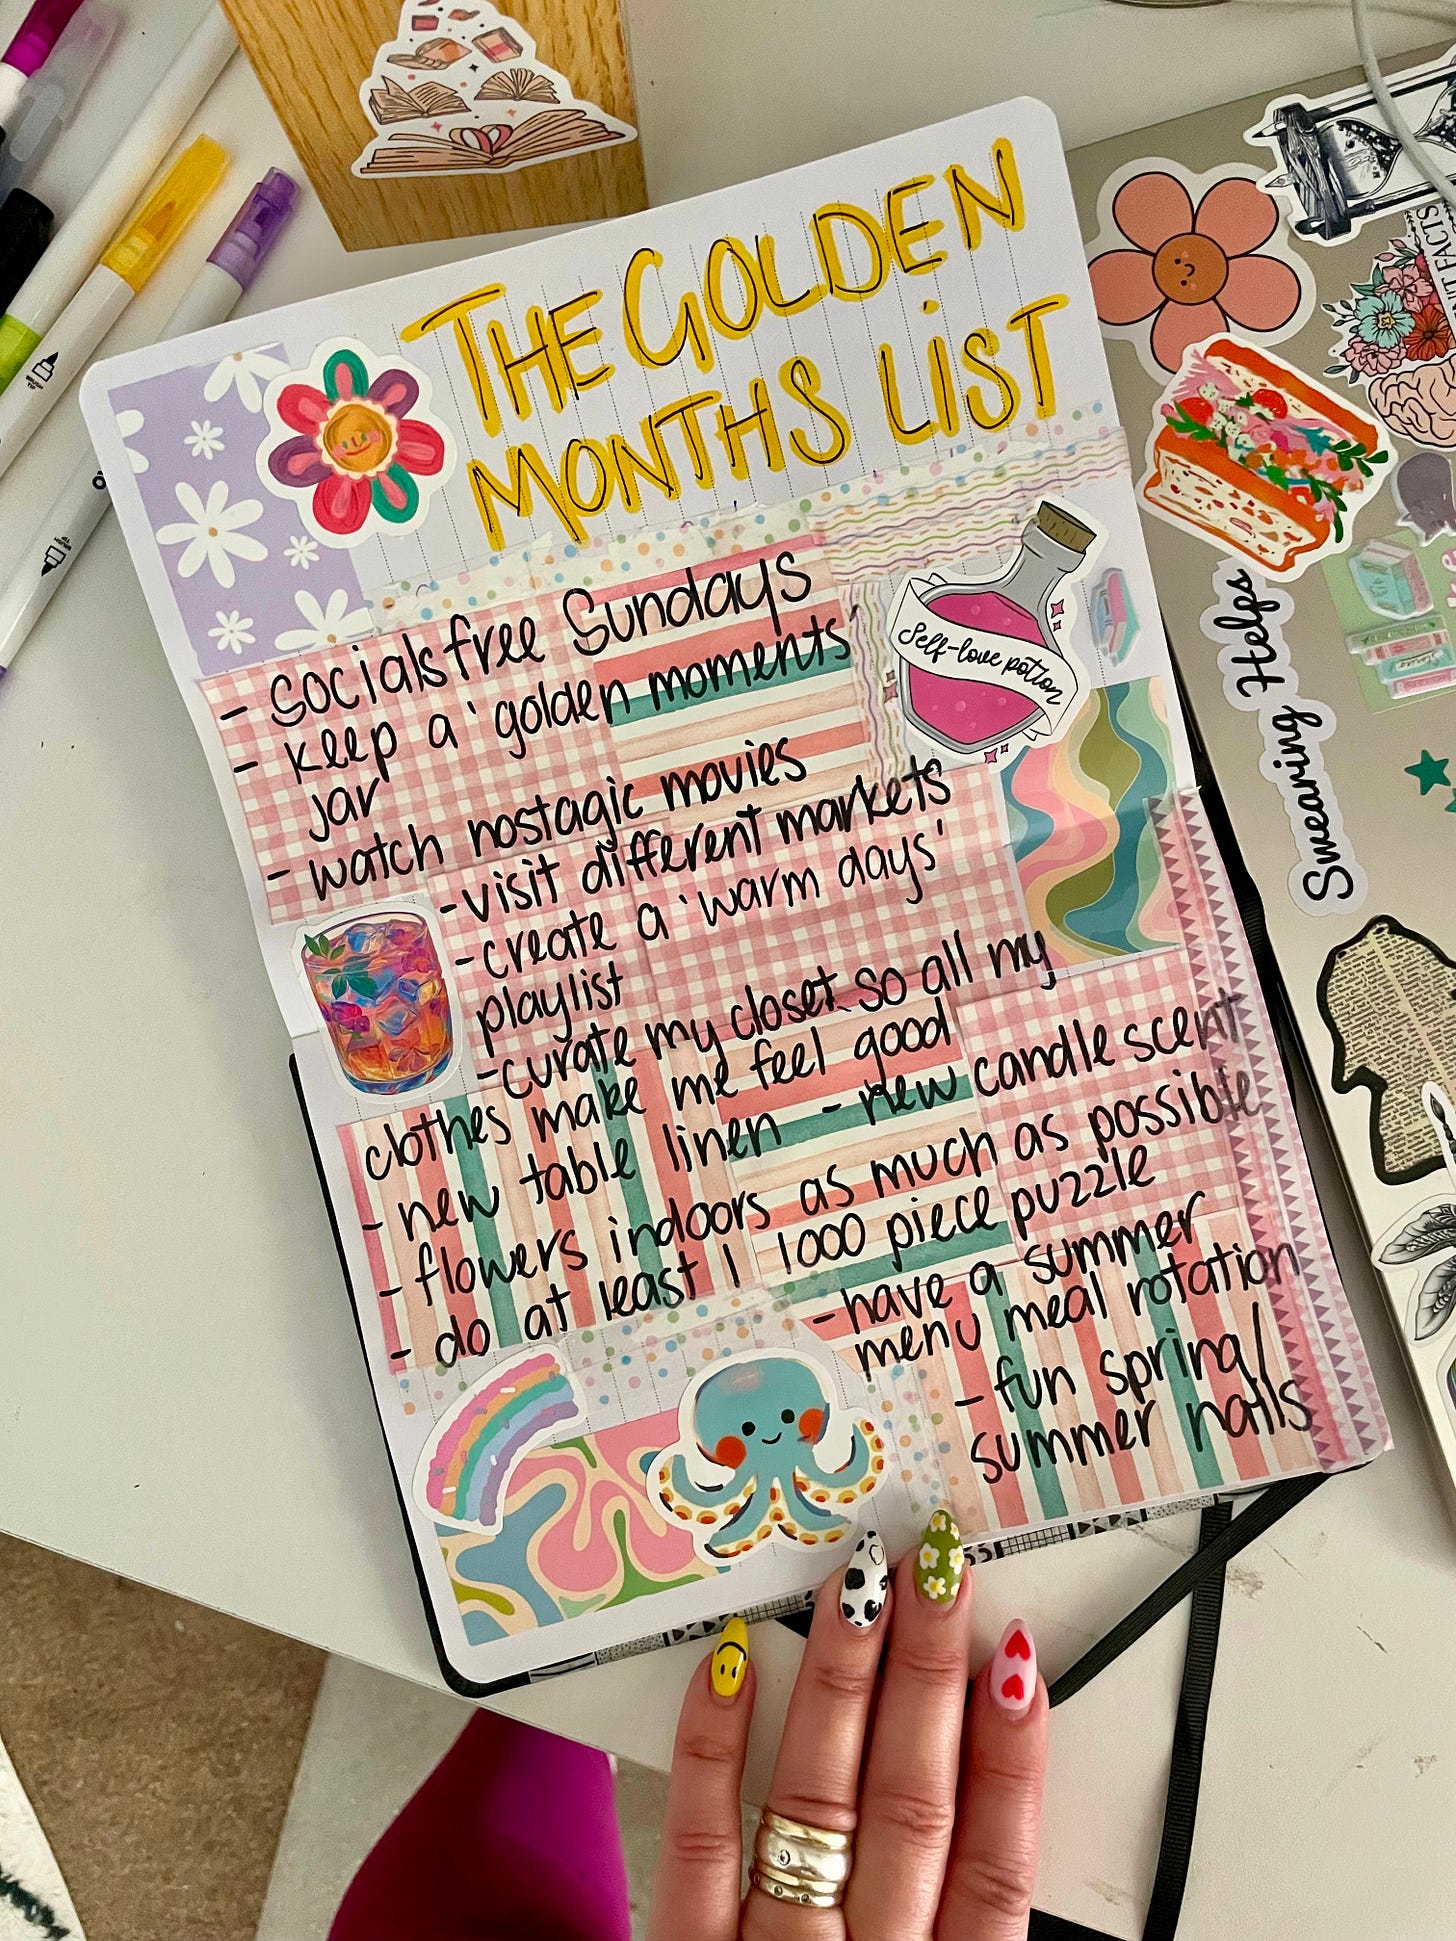 THE GOLDEN
MONTHS LIST
- socials free Sundays
- keep a 'golden moments'
jar
- watch nostagic movies
- visit different markets
- create a 'warm days'
playlist
- curate my closet so all my
clothes make me feel good
- new table linen - new candle scent
- flowers indoors as much as possible
- do at least 1 1000 piece puzzle
- have a summer
menu meal rotation
- fun spring/
summer nails
Self-love potion
Swearing Helps
FACTS
BRUSH
TIP
BRUSH
TIP